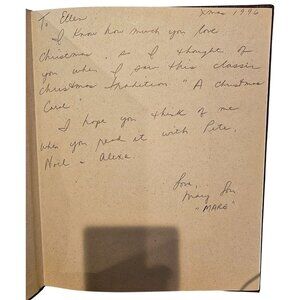 To Ellen Xmas 1996
I know how much you love
Christmas, so I thought of
you when I saw this classic
christmas tradition "A Christmas
Carol"
I hope you think of me
when you read it with Pete,
Noel & Alexe.
Love,
Mary Lou
"MARE"